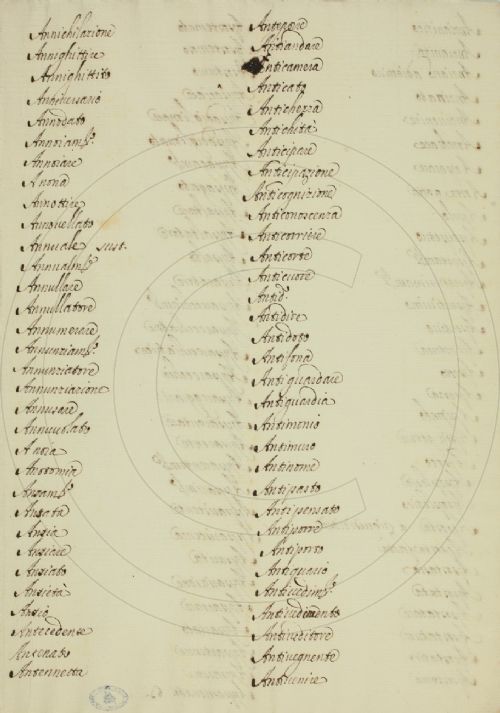 Annichilazione
Annighittire
Annighittito
Anniversario
Annodato
Annoiam.º
Annoiare
Annona
Annottire
Annovellato
Annuale sust.
Annualm.º
Annullare
Annullatore
Annumerare
Annunziam.º
Annunziatore
Annunziazione
Annusare
Annuvolato
Ansia
Anotomia
Ansam.º
Ansata
Ansia
Ansiare
Ansiato
Ansietà
Ansio
Antecedense
Antenato
Antennetta
Anteporre
Antiandare
Anticamera
Anticato
Antichezza
Antichità
Anticipare
Anticipazione
Anticognizione
Anticonoscenza
Anticorriere
Anticorte
Anticuore
Antid.º
Antidire
Antidoto
Antifona
Antiguardare
Antiguardia
Antimonio
Antimuro
Antinome
Antipasto
Antipensato
Antiporre
Antiporto
Antiquario
Antivedim.º
Antivedimento
Antiveditore
Antivegnente
Antivenire